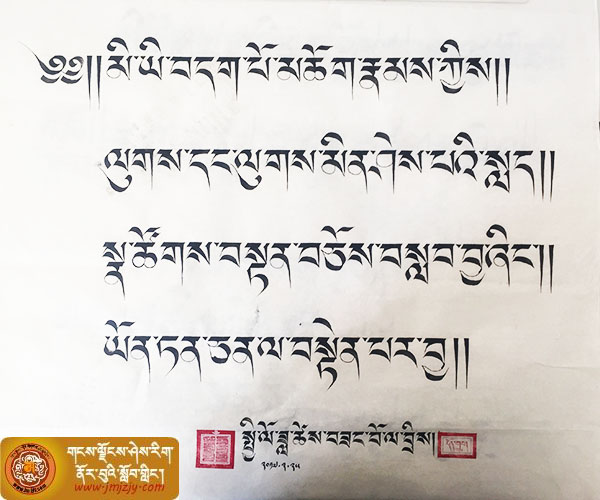 ༄༅།།མི་ཡི་བདག་པོ་མཆོག་རྣམས་ཀྱིས།།
ལུགས་དང་ལུགས་མིན་ཤེས་པའི་སླད།།
སྣ་ཚོགས་བསྟན་བཅོས་བསླབ་བྱ་ཞིང།།
ཡོན་ཏན་ཅན་ལ་བསྟེན་པར་བྱ།།
སྤྱི་ལོ་ཟླ་ཚེས་བཟང་པོ་ལ་བྲིས།
༢༠༡༧.༢.༢༥
གངས་ལྗོངས་ཤེས་རིག
ནོར་བུའི་སློབ་གླིང་།
www.jmzjy.com